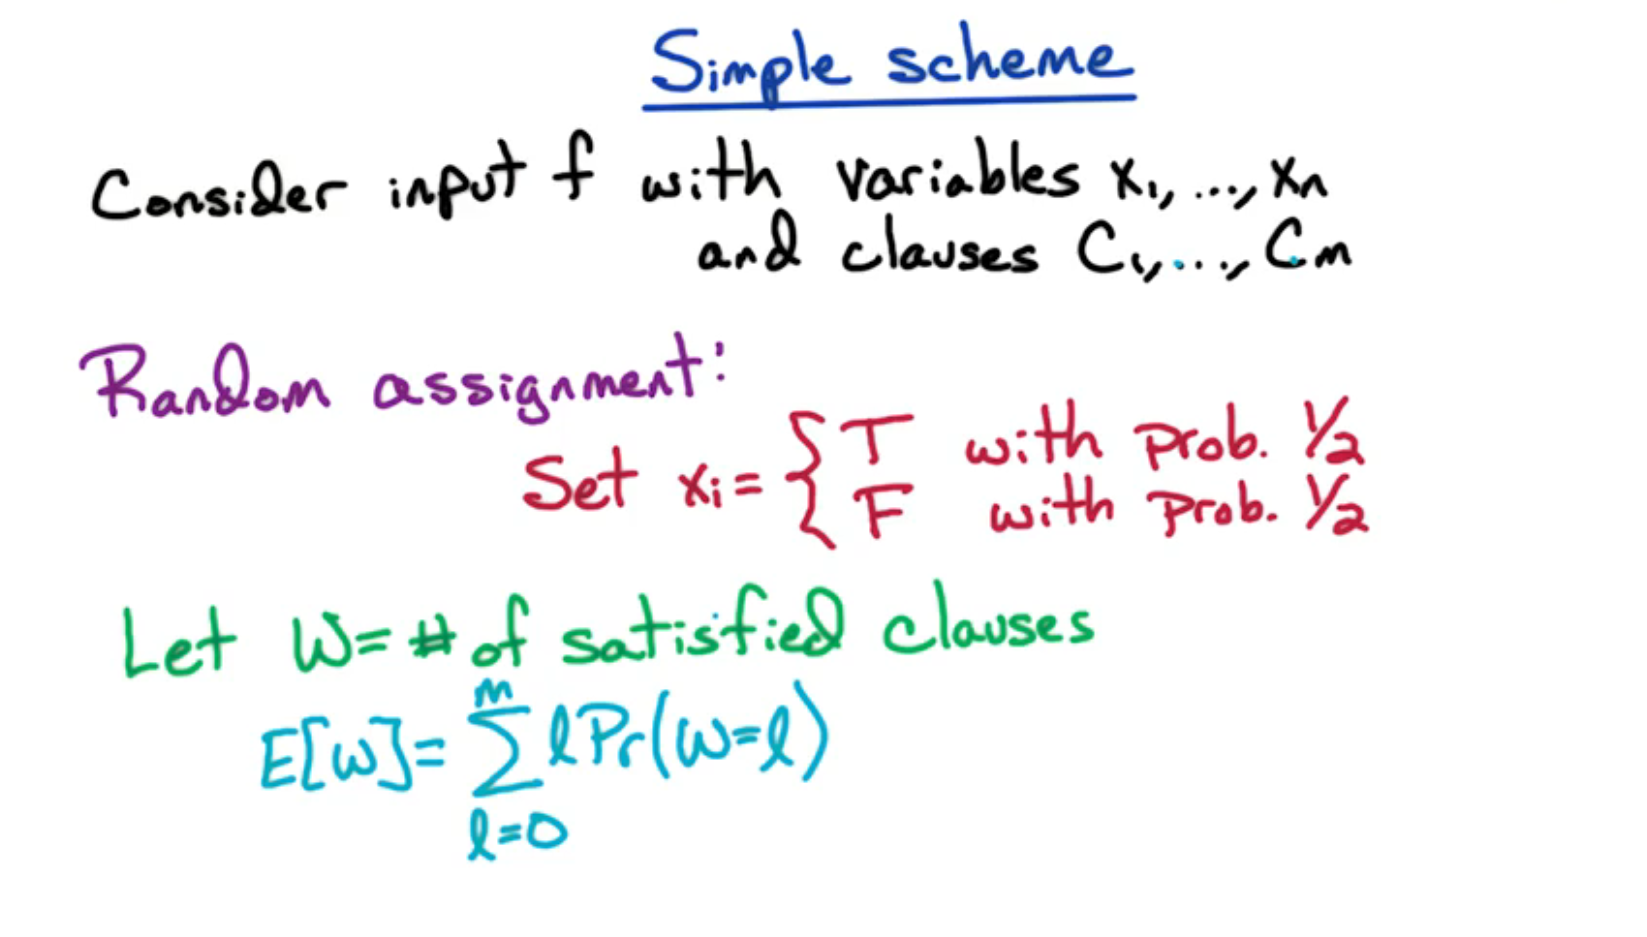 Simple scheme
Consider input f with variables x₁, ..., xₙ
and clauses C₁, ..., Cₘ
Random assignment:
Set xᵢ = { T with prob. 1/2
F with prob. 1/2
Let W = # of satisfied clauses
E[W] = ∑_{l=0}^{m} l Pr(W = l)